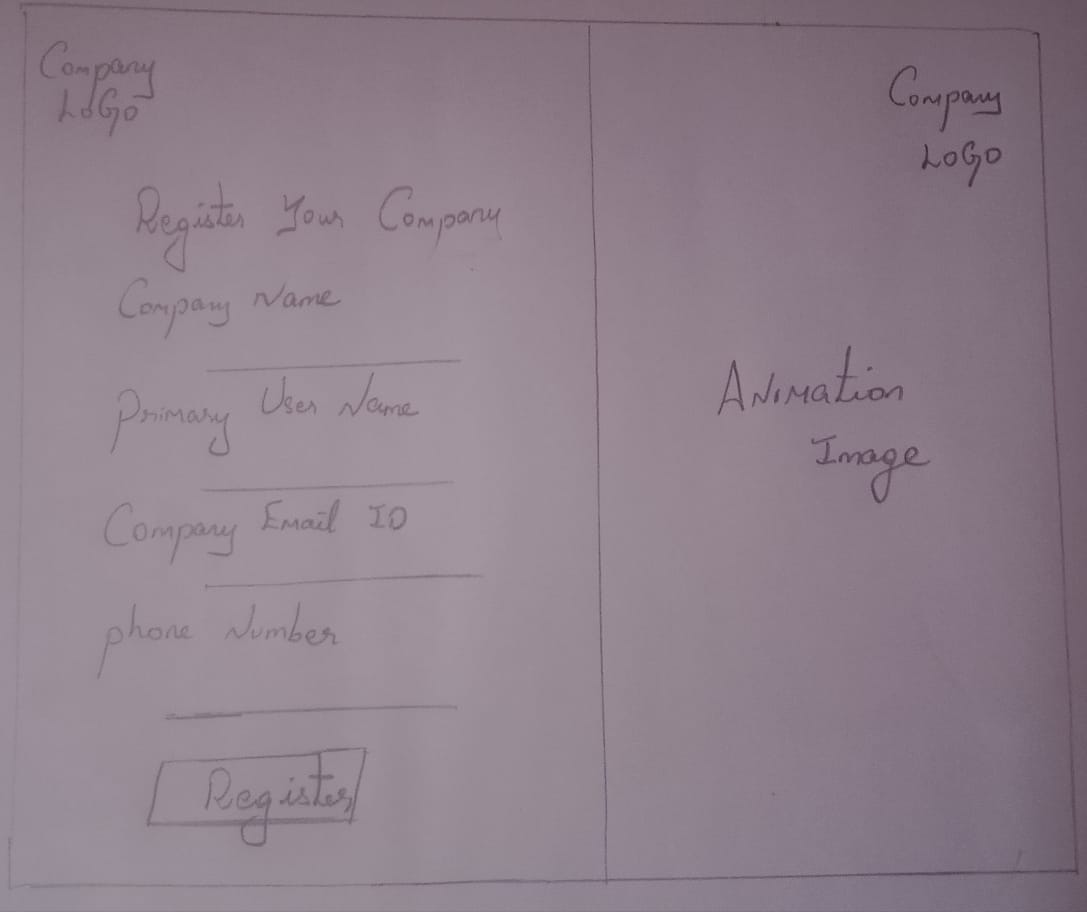 Company
LOGO
Register Your Company
Company Name
Primary User Name
Company Email ID
phone Number
Register
Company
LOGO
Animation
Image